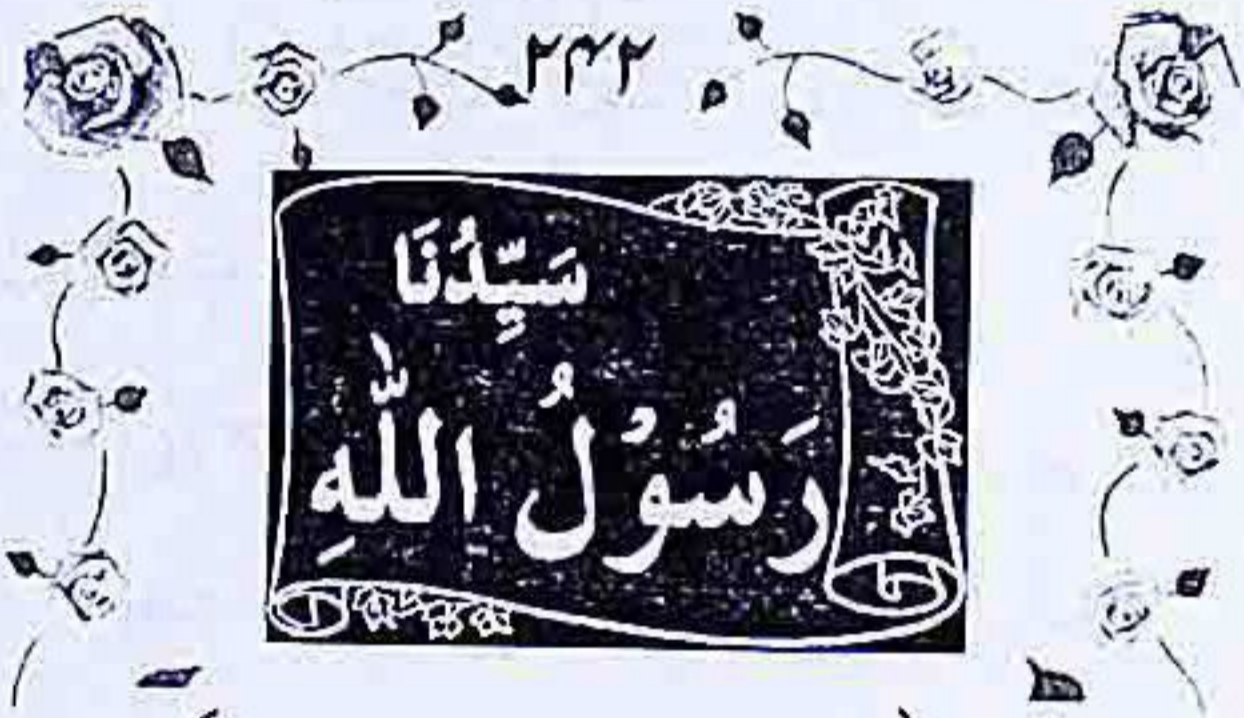 ۲۴۲
سَيِّدُنَا
رَسُوْلُ اللّٰهِ